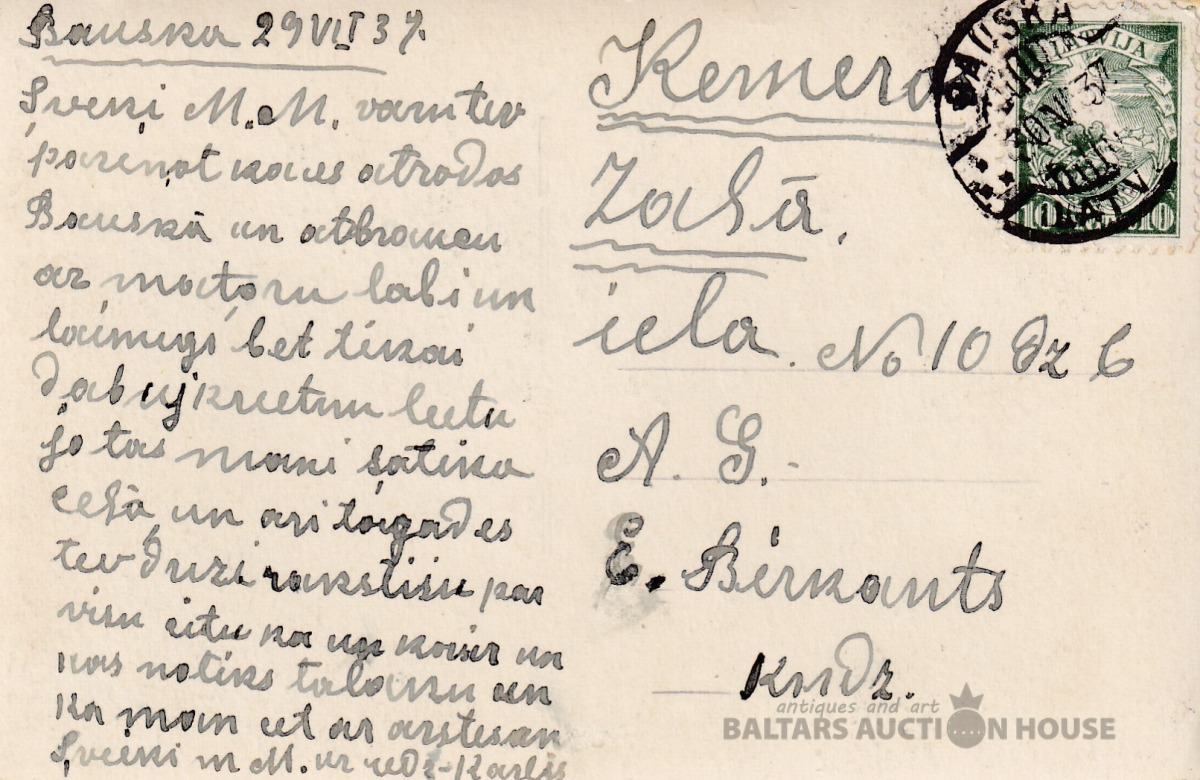 Bauska 29 VII 37.
Sveiki M.M. varu tev
paziņot ka es atrodos
Bauskā un atbraucu
ar motoru labi un
laimīgi bet tikai
dabuj krietnu lietu
jo tas mani satika
ceļā, un ari
tev drīzi rakstišu par
visu citu ka un kas ir un
kas notiks talaku un
ka man iet ar arstešan
Sveiki m M. ar redz-Karlis
Kemeros
Zaļā.
iela. No 10 dz 6
A. G.
E. Bērkants
kndz.
BAUSKA
LATV.
LATVIJA
10 10
antiques and art
BALTARS AUCTION HOUSE